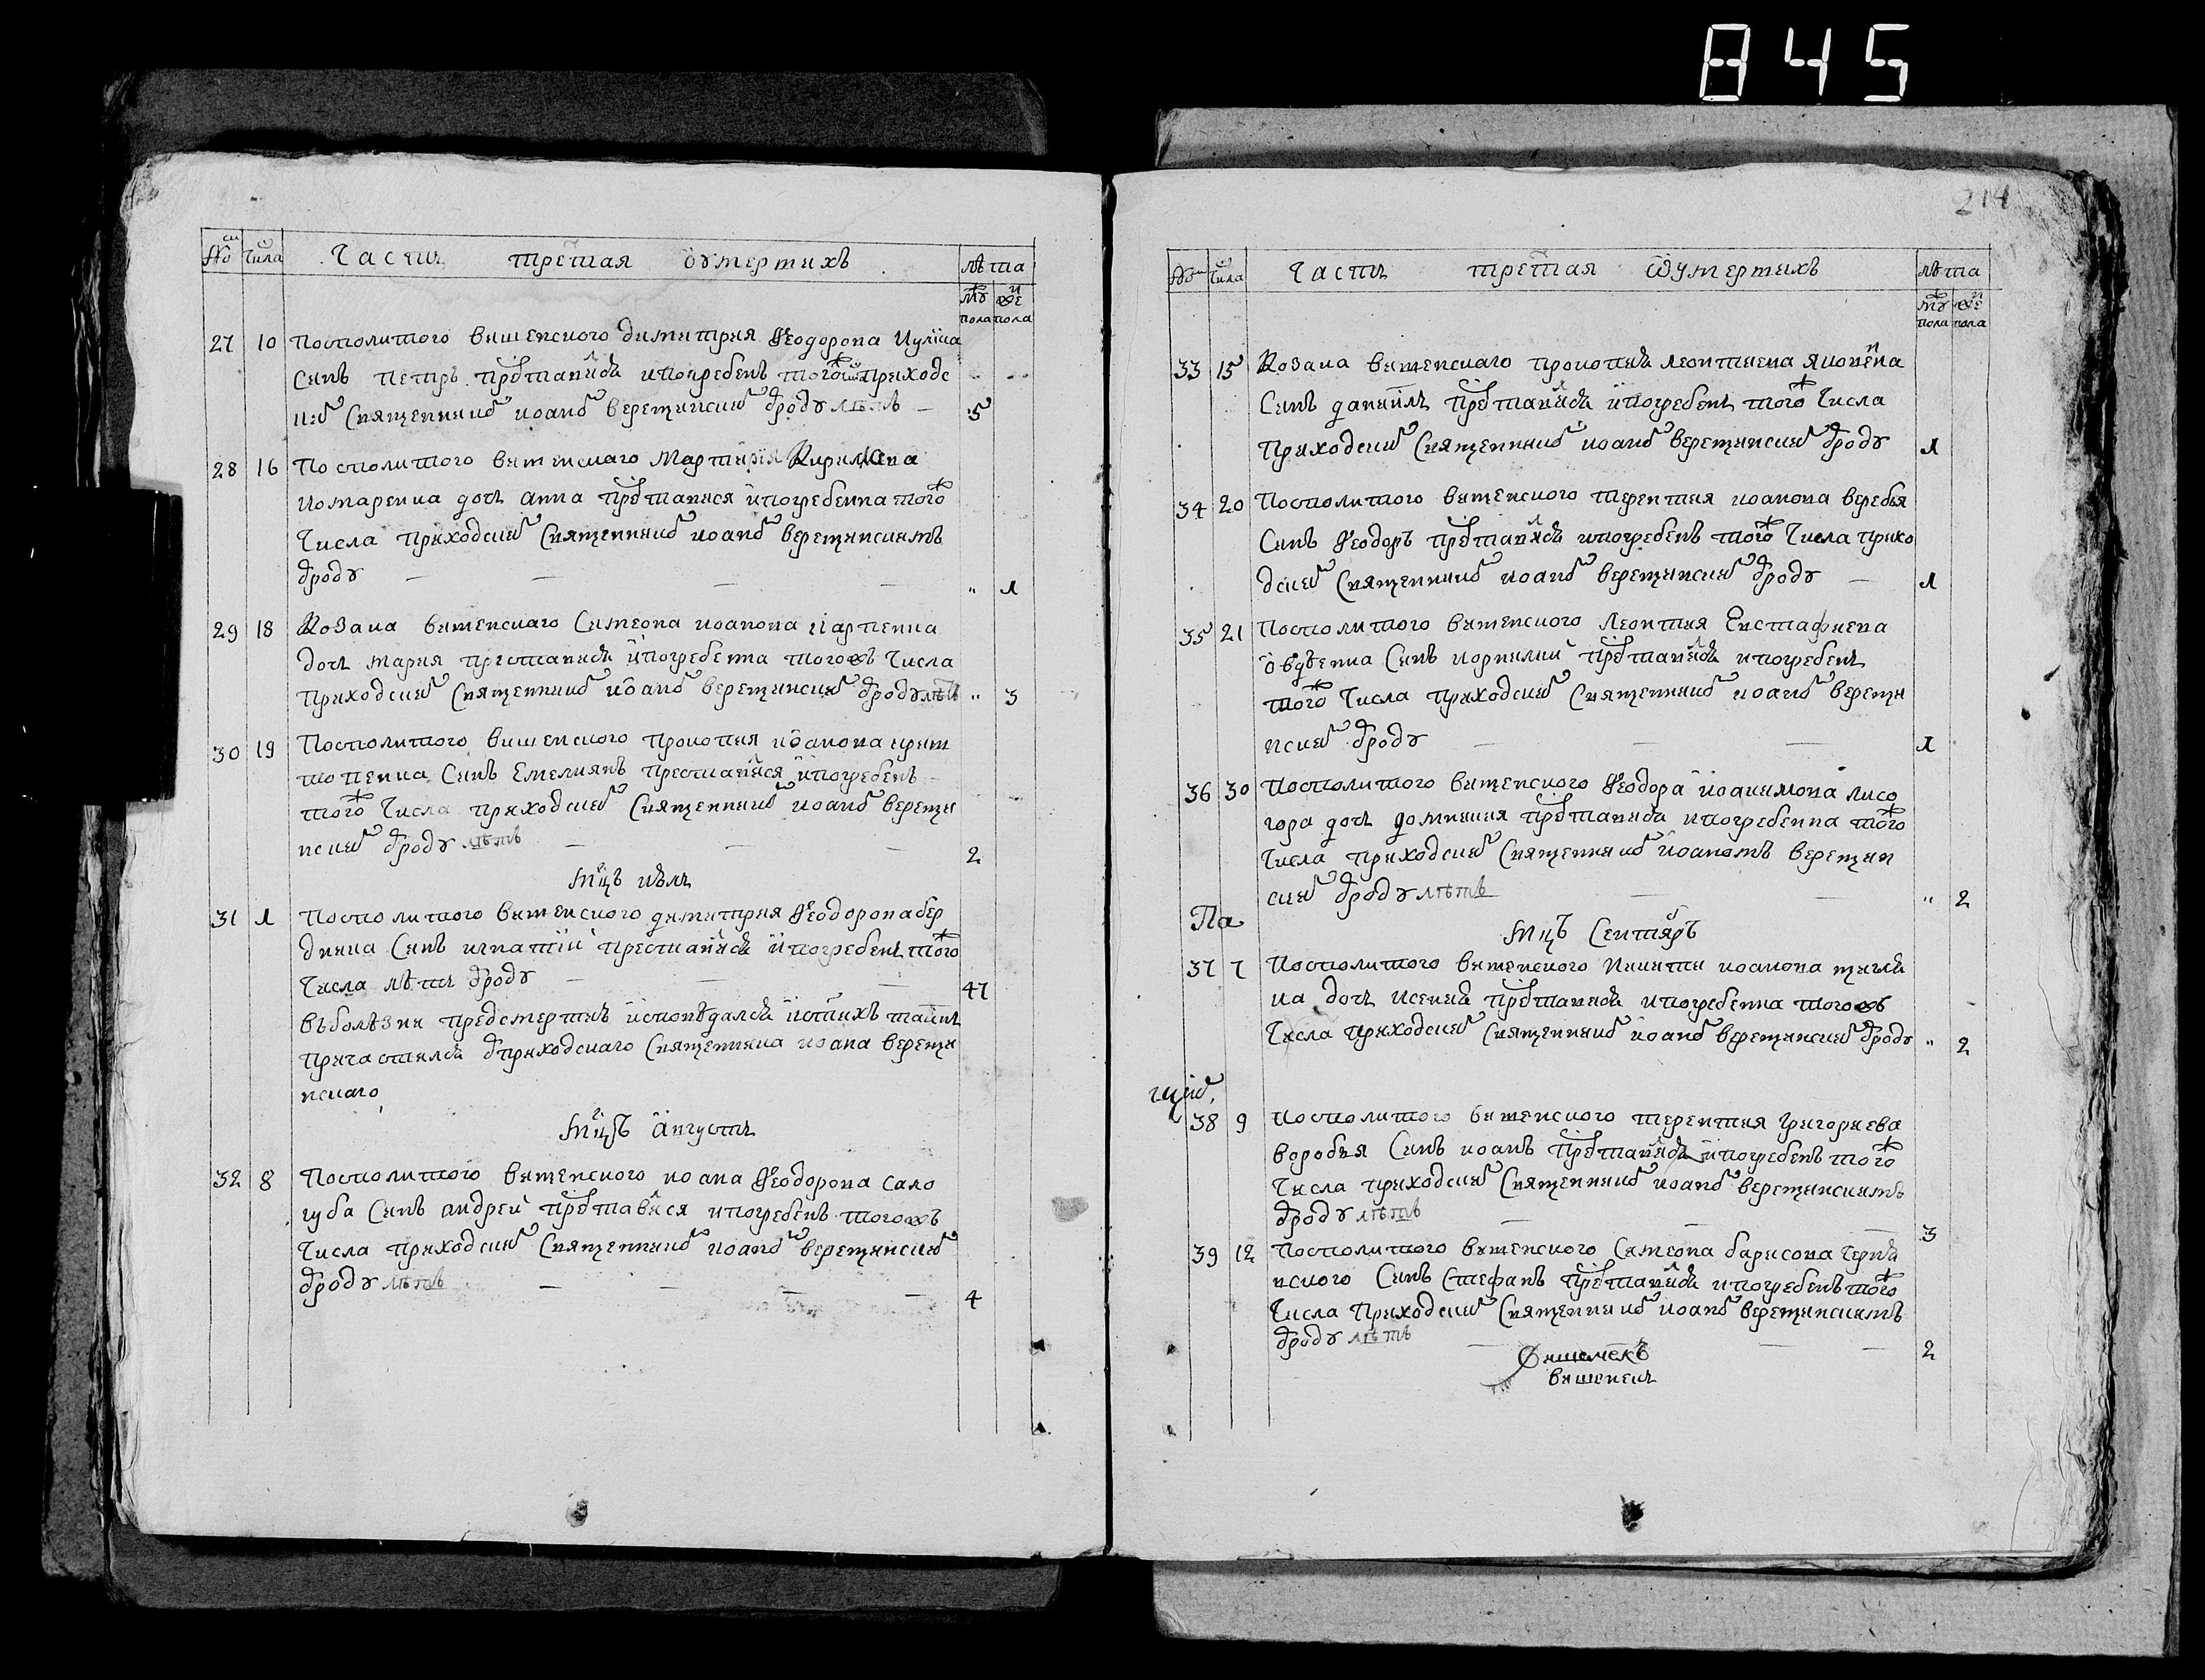 845
214
№ Чила Часть третая оумертихъ лѣта
му пола же пола
27 10 Посполитого вишенского Димитрия Ѳеодорова Кулика
Синъ Петръ преставился ипогребенъ того приходс
ким Священником иоаном верещинским отроду лѣтъ 5
28 16 Посполитого вишенскаго Мартина Кирилова
комаренка дочь анна преставися ипогребенна того ж
Числа приходским Священником иоаном верещинскимъ
отроду " 1
29 18 Козака вишенскаго Симеона иоанова Карпенка
дочь мария преставися ипогребенна тогожъ Числа
приходским Священником иоаном верещинским отроду лѣтъ " 3
30 19 Посполитого вишенского прокопия иоанова
Синъ Емелиянъ преставился ипогребенъ
того ж Числа приходским Священником иоаном верещи
нским отроду лѣтъ 2
мцъ июль
31 1 Посполитого вишенского димитрия Ѳеодорова бер
дника Синъ игнатий преставился ипогребенъ того ж
Числа лѣть отроду 47
вболѣзни предсмертнъ исповѣдался истихъ таинъ
причастился отприходскаго Священника иоана вереща
нскаго
мцъ августъ
32 8 Посполитого вишенского иоана Ѳеодорова сало
губа Синъ андрей преставися ипогребенъ тогожъ
Числа приходским Священником иоаном верещинским
отроду лѣтъ 4
№ Чила Часть третая ѿумертихъ лѣта
му пола же пола
33 15 Козака вишенскаго прокопия леонтиева яковенка
Синъ даниилъ преставился ипогребенъ того ж Числа
Приходским Священником иоаном верещинским отроду 1
34 20 Посполитого вишенского терентия иоанова веребья
Синъ Ѳеодоръ преставился ипогребенъ того ж Числа прихо
дским Священником иоаном верещинским отроду 1
35 21 Посполитого вишенского Леонтия Евстафиева
овдѣенка Синъ корнилий преставился ипогребенъ
того ж Числа приходским Священником иоаном верещи
нским отроду 1
36 30 Посполитого вишенского Ѳеодора иоакимова лисо
гора дочь домникия преставися ипогребенна того ж
Числа приходским Священником иоаномъ верещин
ским отроду лѣтъ " 2
Па
мцъ Сентябръ
37 7 Посполитого вишенского Никити иоанова щигла
ка дочь ксения преставися ипогребенна тогожъ
Числа приходским Священником иоаном верещинским отроду " 2
38 9 Посполитого вишенского терентия Григориева
воробия Синъ иоанъ преставился ипогребенъ того ж
Числа приходским Священником иоаном верещинскимъ
отроду лѣтъ 3
39 12 Посполитого вишенского Симеона барисова черня
вского Синъ Стефанъ преставился ипогребенъ того ж
Числа Приходским Священником иоаном верещинскимъ
отроду лѣтъ 2